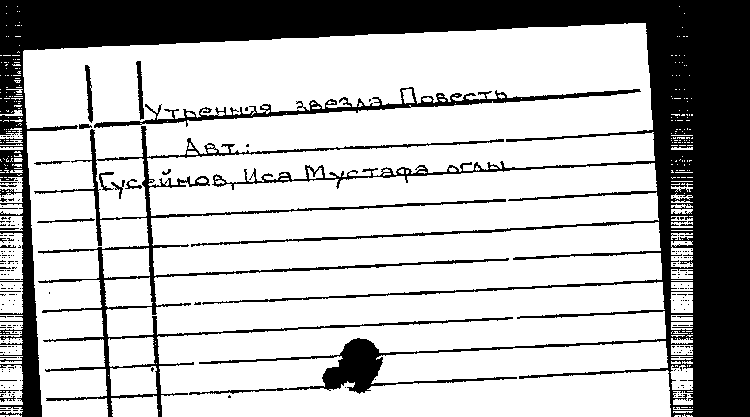 Утренняя звезда. Повесть
Авт.:
Гусейнов, Иса Мустафа оглы